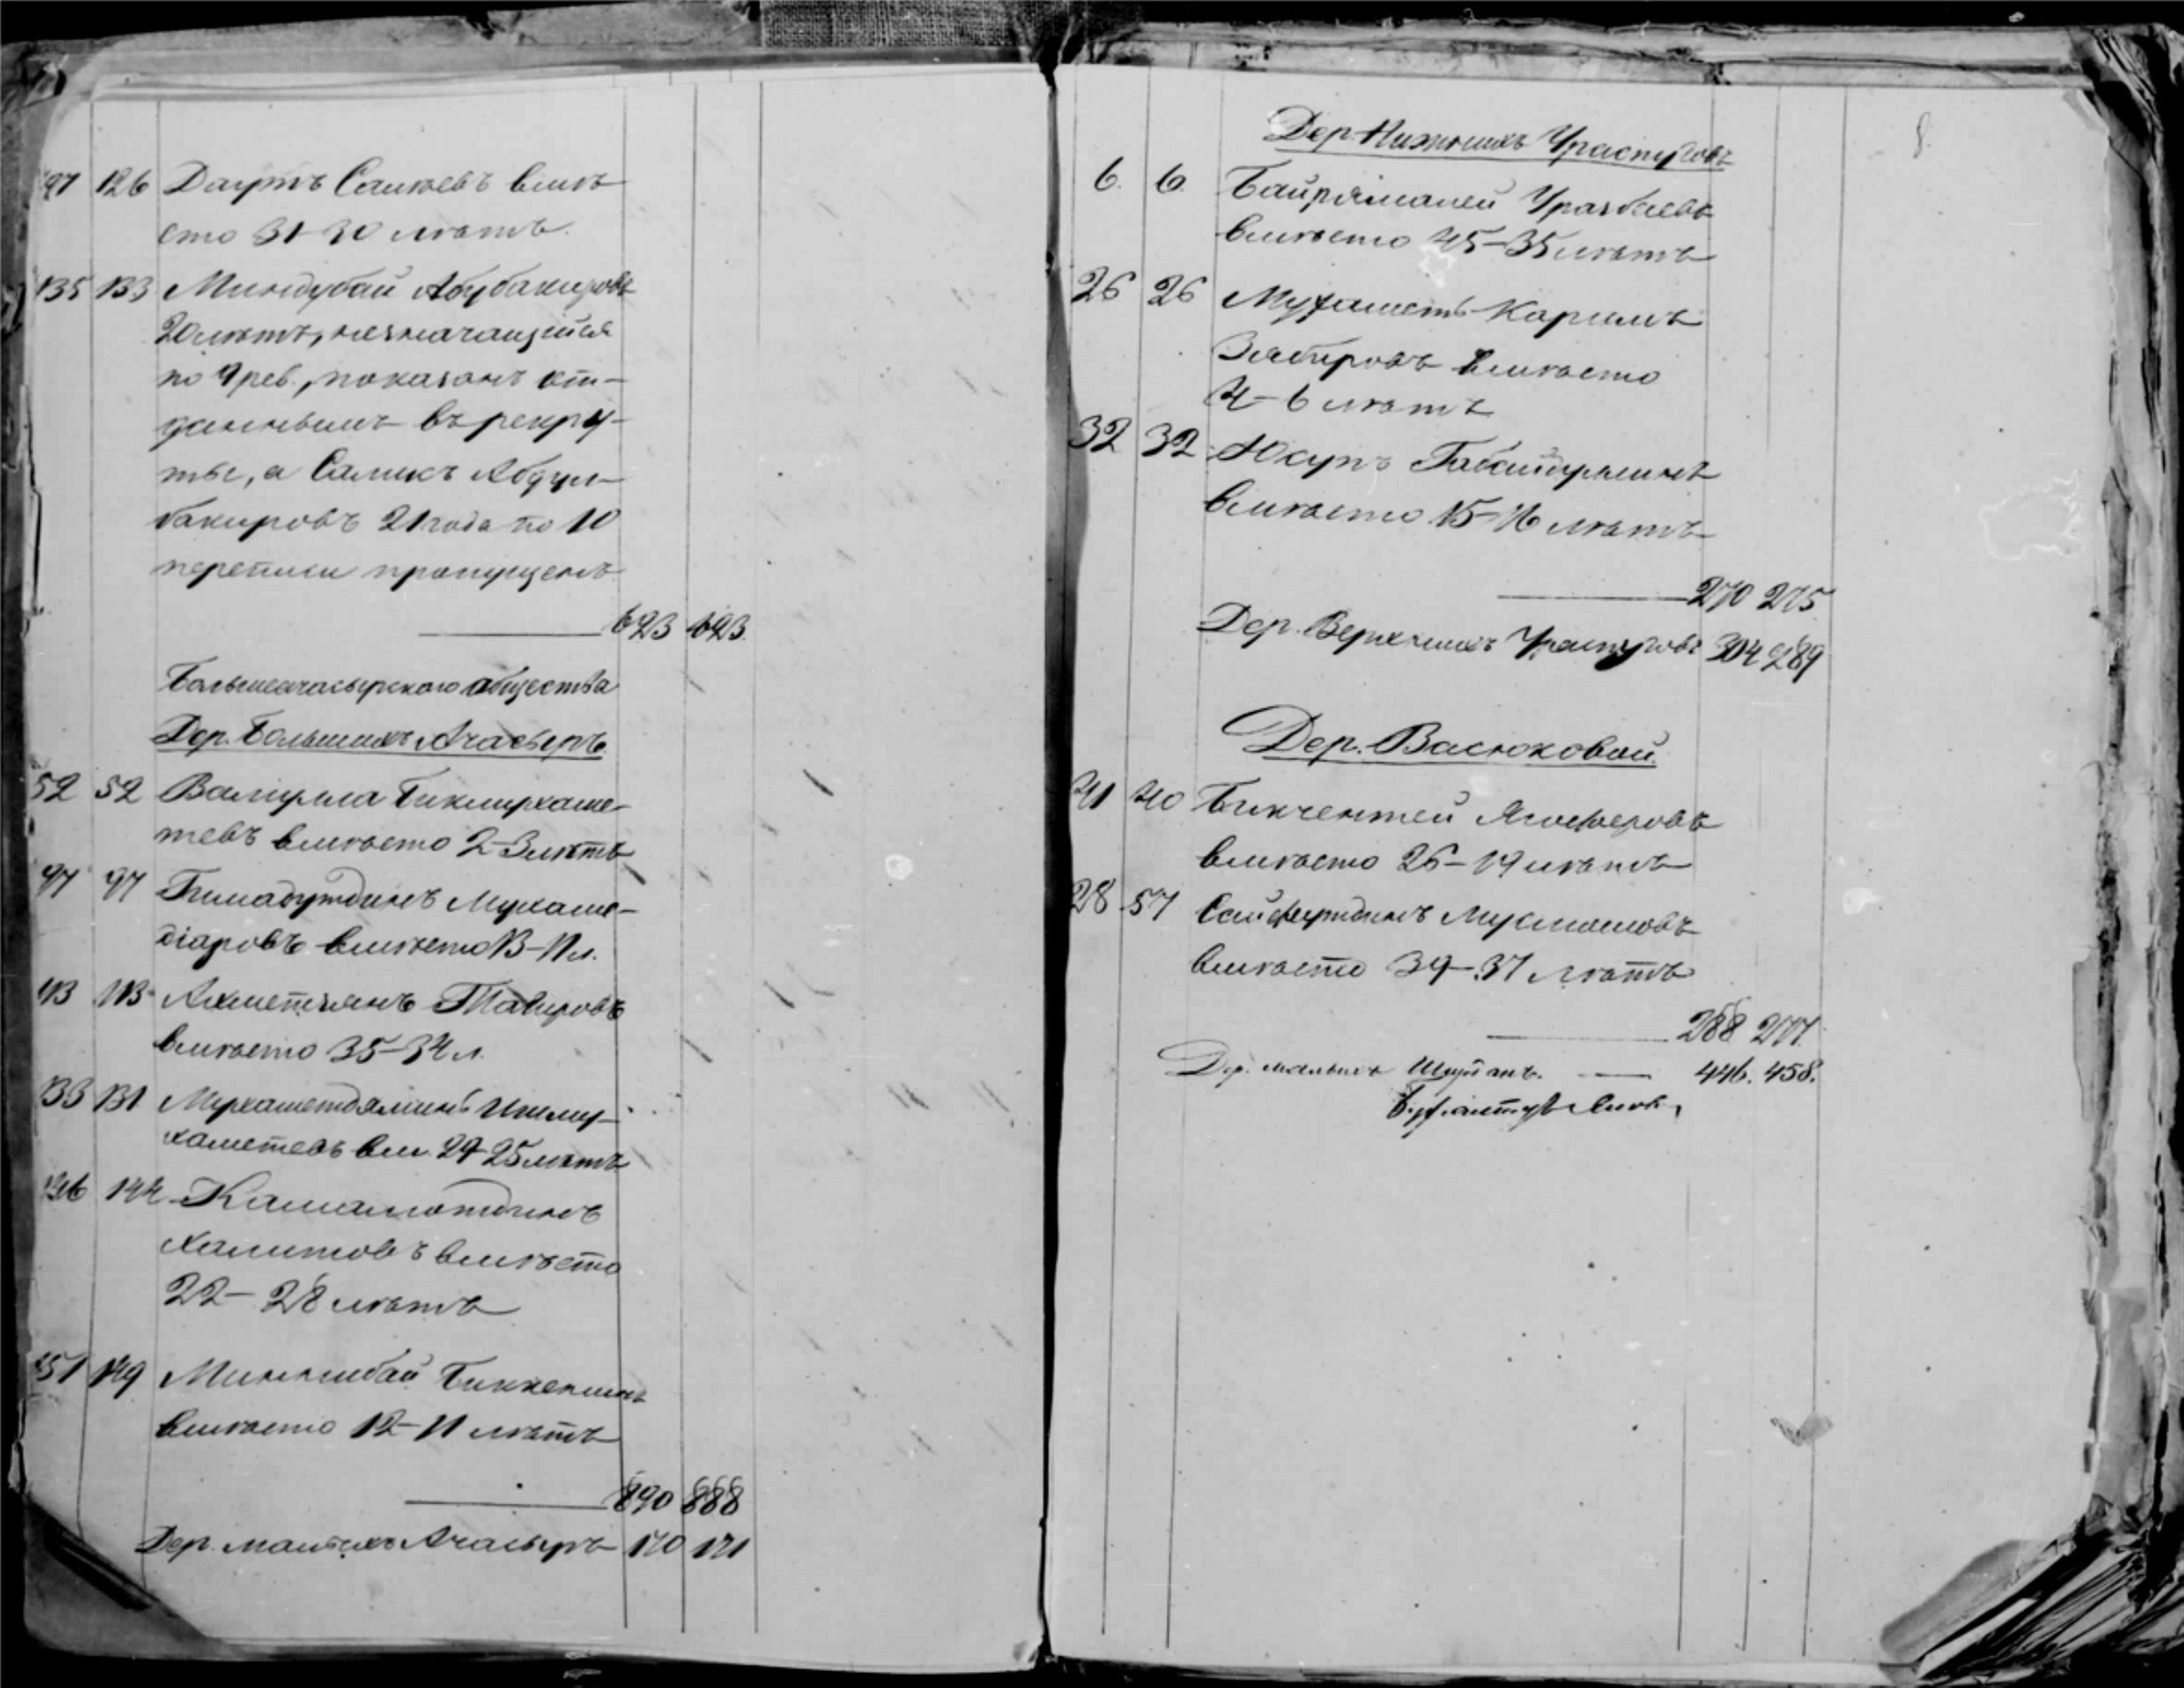 97 126 Даутъ Салеевъ вмѣ-
сто 31-30 лѣтъ.
135 133 Миндубай Абубакировъ
20 лѣтъ, незначащійся
по 9 рев., показанъ от-
даннымъ въ рекру-
ты, а Салихъ Абдул-
бакировъ 21 года по 10
переписи пропущенъ
623 623.
Большеачасырскаго общества
Дер. Большихъ Ачасыръ
52 52 Валиулла Бикмухаме-
тевъ вмѣсто 2-3 лѣтъ
97 97 Гимадутдинъ Мухаме-
діаровъ вмѣсто 13-11 л.
113 113 Ахметзянъ Тагировъ
вмѣсто 35-34 л.
133 131 Мухаметдяминъ Ишму-
хаметевъ вм. 24-25 лѣтъ
146 144 Камалотдинъ
Халитовъ вмѣсто
22-28 лѣтъ
151 149 Миннибай Биккенинъ
вмѣсто 12-11 лѣтъ
890 888
Дер. малыхъ Ачасыръ 170 171
8.
Дер. Нижнихъ Ураспуговъ
6. 6. Байрямалей Уразбаевъ
вмѣсто 45-35 лѣтъ
26 26 Мухаметъ-Каримъ
Зябировъ вмѣсто
4-6 лѣтъ
32 32 Юсупъ
вмѣсто 15-16 лѣтъ
270 275
Дер. Верхнихъ Ураспуговъ 304 289
Дер. Васюковой.
41 40 Бикчентей Ягоферовъ
вмѣсто 26-19 лѣтъ
28 57 Сайфутдинъ
вмѣсто 39-37 лѣтъ
288 277.
Дер. малыхъ 446. 458.